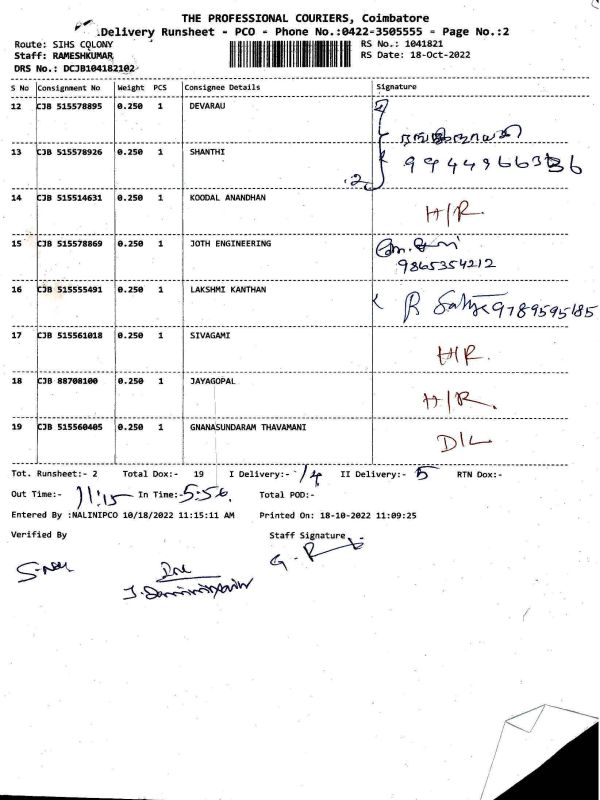 THE PROFESSIONAL COURIERS, Coimbatore
Delivery Runsheet - PCO - Phone No.:0422-3505555 - Page No.:2
Route: SIHS COLONY
RS No.: 1041821
Staff: RAMESHKUMAR
RS Date: 18-Oct-2022
DRS No.: DCJB104182102
S No Consignment No Weight PCS Consignee Details Signature
12 CJB 515578895 0.250 1 DEVARAU
13 CJB 515578926 0.250 1 SHANTHI
14 CJB 515514631 0.250 1 KOODAL ANANDHAN H/R.
15 CJB 515578869 0.250 1 JOTH ENGINEERING
9865354212
16 CJB 515555491 0.250 1 LAKSHMI KANTHAN 9789595185
17 CJB 515561018 0.250 1 SIVAGAMI H/R.
18 CJB 88708100 0.250 1 JAYAGOPAL H/R.
19 CJB 515560405 0.250 1 GNANASUNDARAM THAVAMANI D/L
Tot. Runsheet:- 2 Total Dox:- 19 I Delivery:- 14 II Delivery:- 5 RTN Dox:-
Out Time:- 11:15 In Time:- 5:56. Total POD:-
Entered By :NALINIPCO 10/18/2022 11:15:11 AM Printed On: 18-10-2022 11:09:25
Verified By Staff Signature